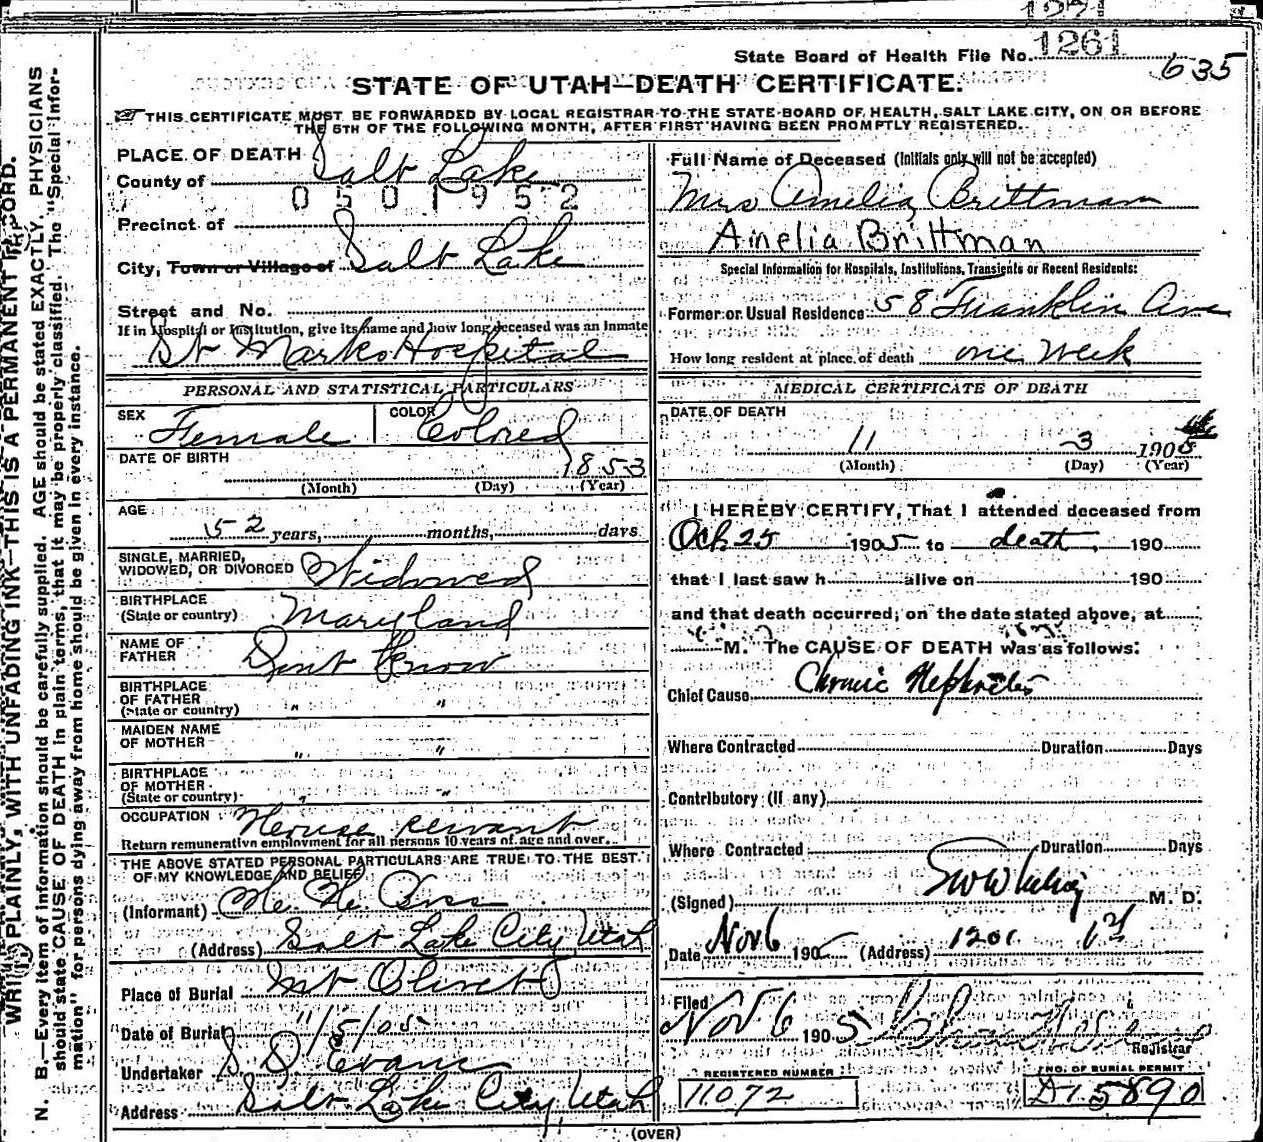 1271
1261
State Board of Health File No.
635
STATE OF UTAH—DEATH CERTIFICATE.
THIS CERTIFICATE MUST BE FORWARDED BY LOCAL REGISTRAR TO THE STATE BOARD OF HEALTH, SALT LAKE CITY, ON OR BEFORE
THE 5TH OF THE FOLLOWING MONTH, AFTER FIRST HAVING BEEN PROMPTLY REGISTERED.
WRITE PLAINLY, WITH UNFADING INK—THIS IS A PERMANENT RECORD.
N. B.—Every item of information should be carefully supplied. AGE should be stated EXACTLY. PHYSICIANS
should state CAUSE OF DEATH in plain terms, that it may be properly classified. The "Special Infor-
mation" for persons dying away from home should be given in every instance.
PLACE OF DEATH
County of Salt Lake
0501952
Precinct of
City, Town or Village of Salt Lake
Street and No.
If in Hospital or Institution, give its name and how long deceased was an Inmate
St Marks Hospital
PERSONAL AND STATISTICAL PARTICULARS
SEX Female COLOR Colored
DATE OF BIRTH 1853
(Month) (Day) (Year)
AGE
52 years, months, days
SINGLE, MARRIED,
WIDOWED, OR DIVORCED Widowed
BIRTHPLACE
(State or country) Maryland
NAME OF
FATHER Dont Know
BIRTHPLACE
OF FATHER
(State or country) " "
MAIDEN NAME
OF MOTHER " "
BIRTHPLACE
OF MOTHER
(State or country) " "
OCCUPATION House servant
Return remunerative employment for all persons 10 years of age and over.
THE ABOVE STATED PERSONAL PARTICULARS ARE TRUE TO THE BEST
OF MY KNOWLEDGE AND BELIEF
(Informant)
(Address) Salt Lake City Utah
Place of Burial Mt Olivet
Date of Burial 11/5/05
Undertaker S. D. Evans
Address Salt Lake City, Utah
Full Name of Deceased (Initials only will not be accepted)
Mrs Amelia Brittman
Amelia Brittman
Special Information for Hospitals, Institutions, Transients or Recent Residents:
Former or Usual Residence 58 Franklin Ave
How long resident at place of death one week
MEDICAL CERTIFICATE OF DEATH
DATE OF DEATH
11 3 1905
(Month) (Day) (Year)
I HEREBY CERTIFY, That I attended deceased from
Oct. 25 1905 to death, 190
that I last saw h alive on 190
and that death occurred, on the date stated above, at
M. The CAUSE OF DEATH was as follows:
Chief Cause Chronic Nephritis
Where Contracted Duration Days
Contributory (if any)
Where Contracted Duration Days
(Signed) M. D.
Date Nov 6 1905 (Address) 1201
Filed
Nov. 6 1905
Registrar
REGISTERED NUMBER
11072
NO. OF BURIAL PERMIT
D15890
(OVER)